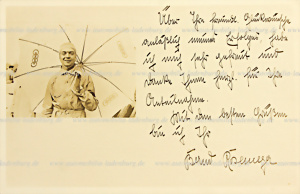 Über Ihre freundl. Glückwünsche
anläßlich meines Erfolges habe
ich mich sehr gefreut und
danke Ihnen herzl. für Ihre
Anteilnahme.
Mit den besten Grüßen
bin ich Ihr
Bernd Rosemeyer